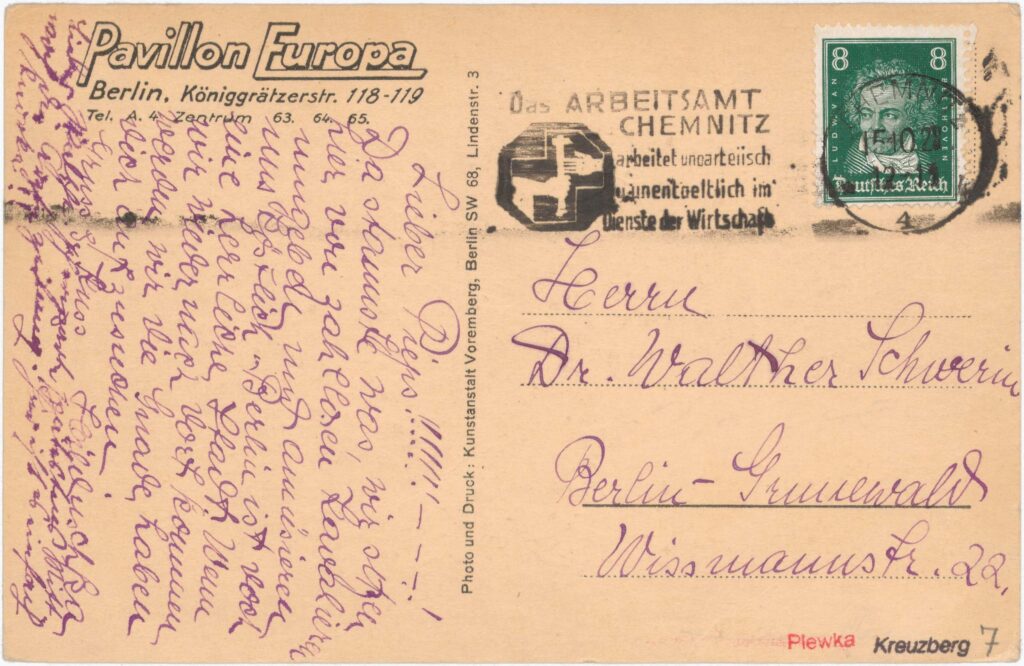 Pavillon Europa
Berlin, Königgrätzerstr. 118-119
Tel. A. 4. Zentrum 63. 64. 65.
Lieber Pieps!!!!!! — — — !
Da staunste was, wir sitzen
hier von zahllosen Kavalieren
umgeben und amüsieren
uns köstlich. Berlin ist doch
eine herrliche Stadt. Wenn
wir wieder nach dort kommen
werden wir die Gnade haben
Dich aufzusuchen.
Gruss Kuss
Photo und Druck: Kunstanstalt Voremberg, Berlin SW 68, Lindenstr. 3
Das ARBEITSAMT
CHEMNITZ
arbeitet unparteiisch
unentgeltlich im
Dienste der Wirtschaft
8 8
LUDW. VAN BEETHOVEN
Deutsches Reich
CHEMNITZ
15.10.2
4
Herrn
Dr. Walther Schwerin
Berlin-Grunewald
Wissmannstr. 22.
Plewka Kreuzberg 7